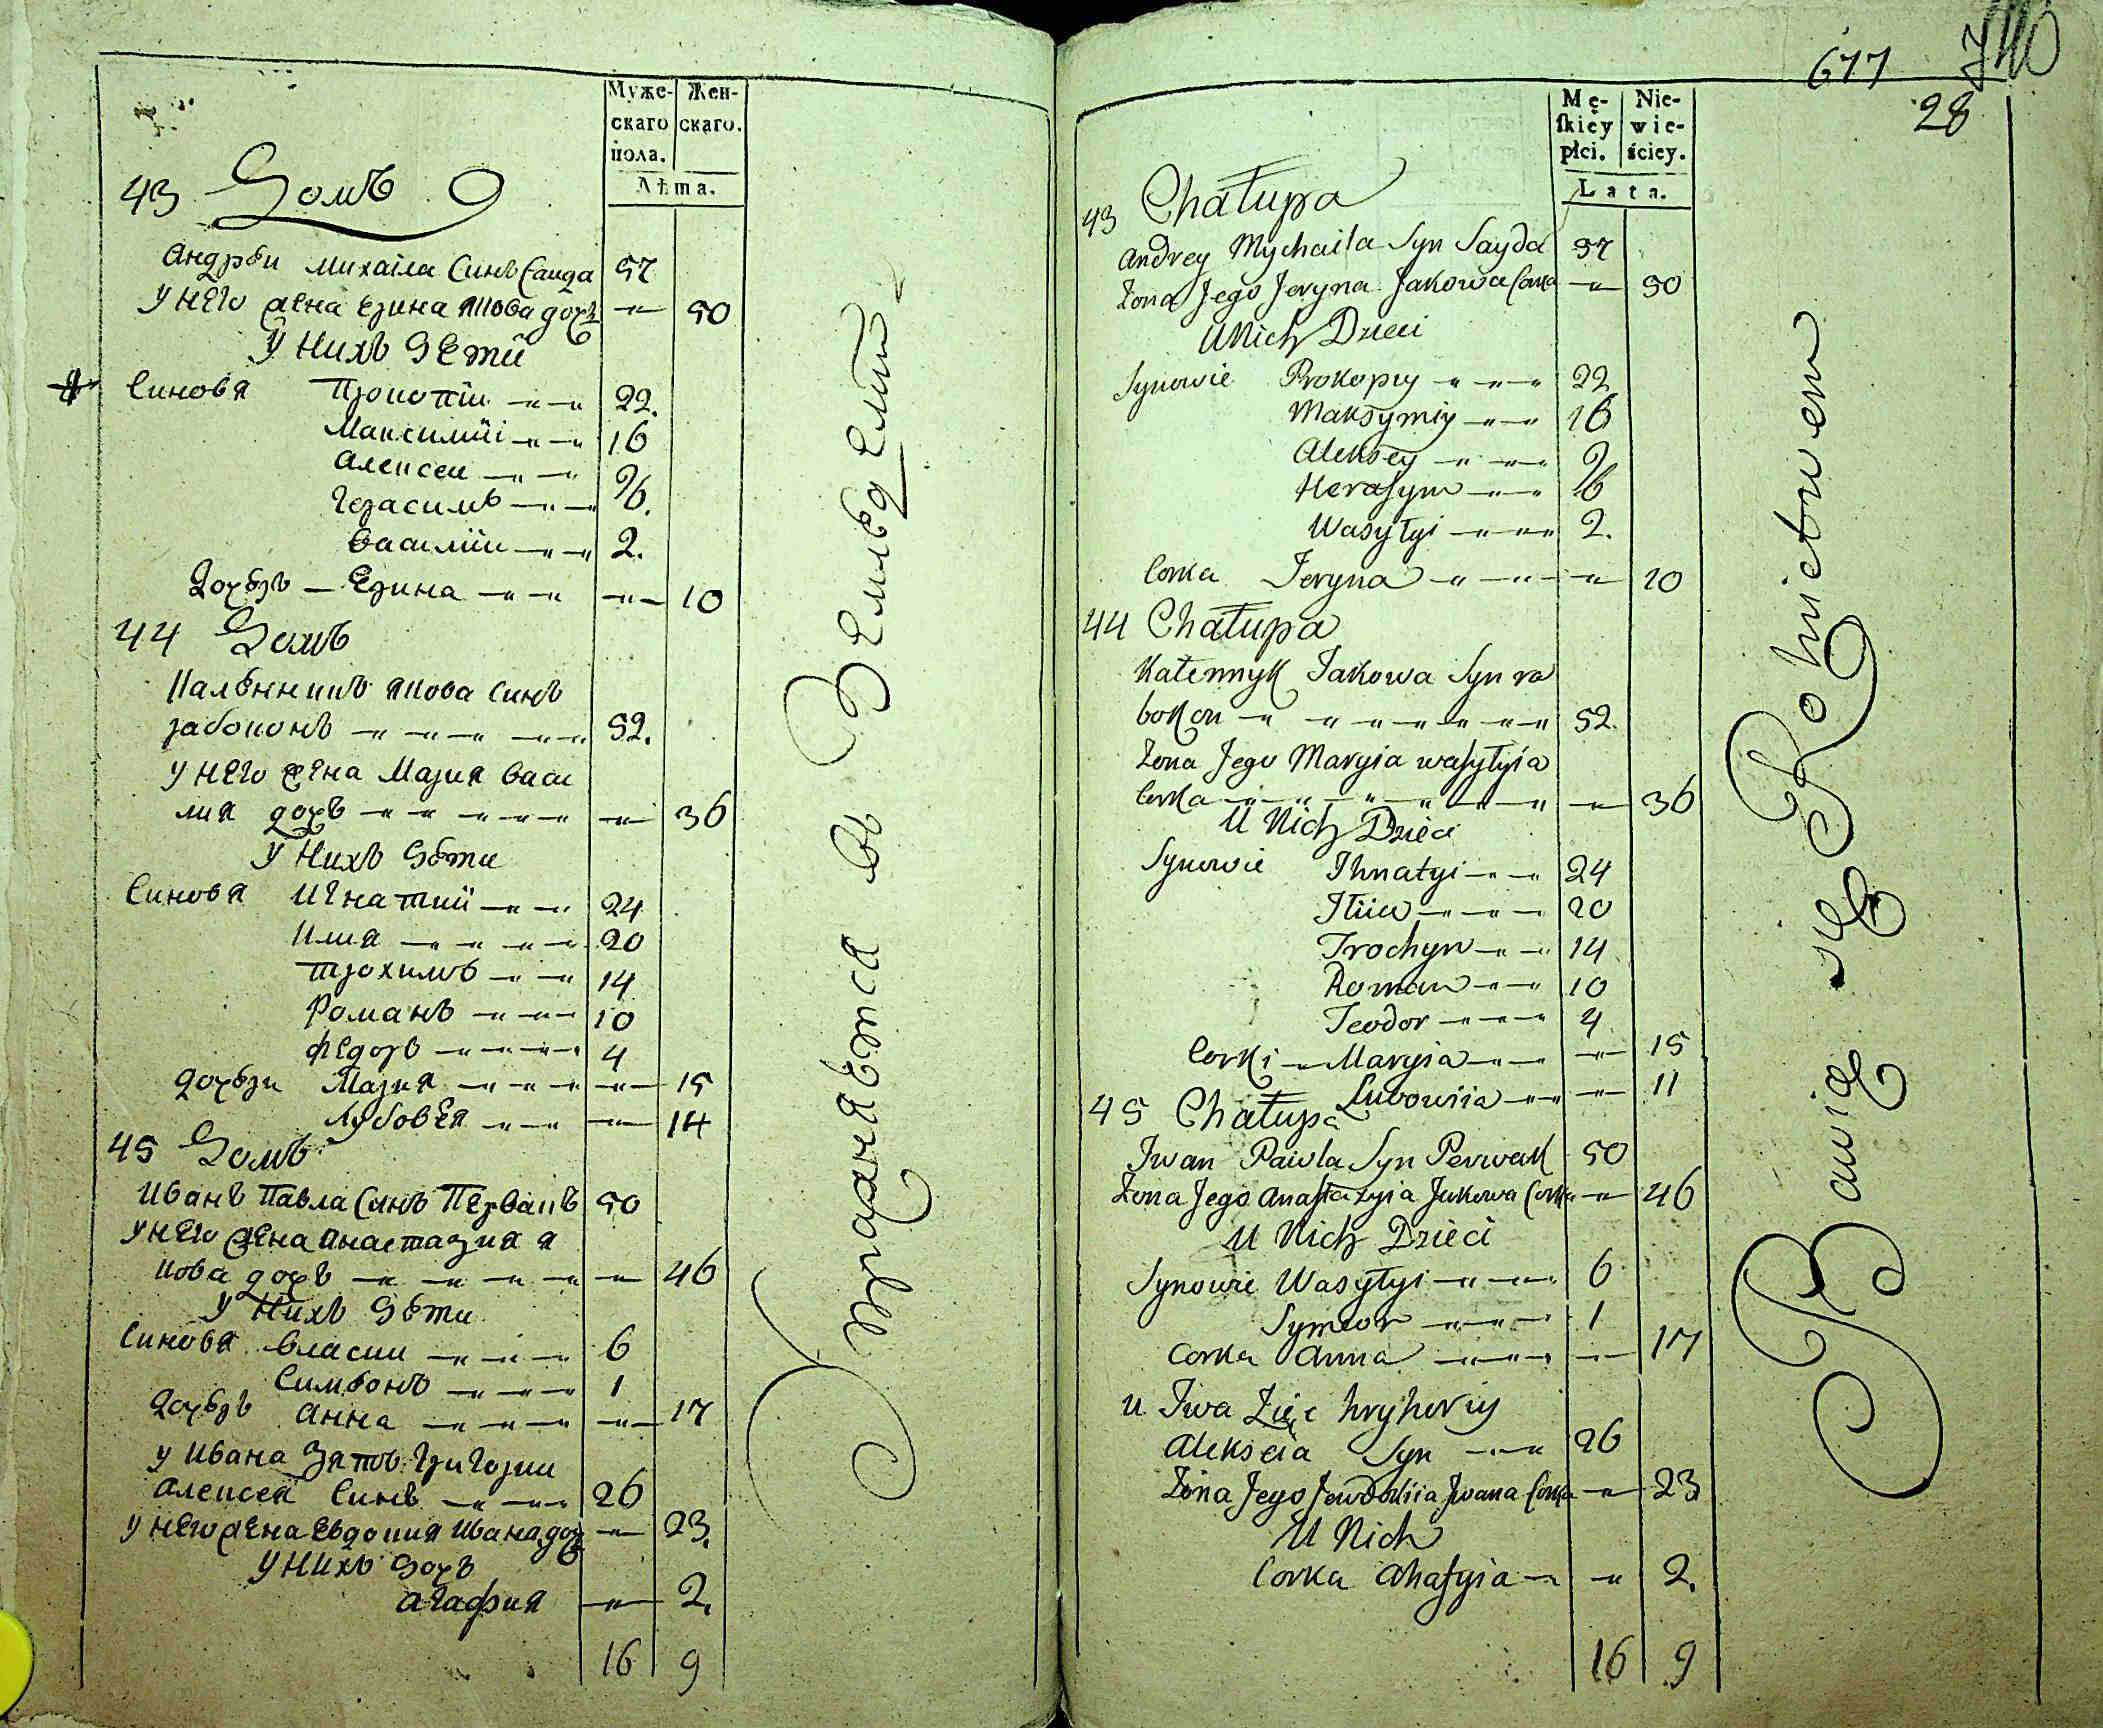 Муже-
скаго
пола.
Жен-
скаго.
Лѣта.
43 Домъ 9
Андрѣи Михаила Синъ Саида 57
У него жена Ерина Якова дочъ 50
У нихъ дети
Синовя Прокопіи 22.
Максиміи 16
Алексеи 9
Герасимъ 6.
Василіи 2.
Дочѣръ Ерина 10
44 Домъ
Калѣнникъ Якова Синъ
рабоконъ 52.
У него жена Мария Васи
лия дочъ 36
У нихъ дѣти
Синовя Игнатии 24
Илия 20
Трохимъ 14
Романъ 10
Федоръ 4
дочѣри Мария 15
Любовея 14
45 Домъ
Иванъ Павла Синъ Пѣрвакъ 50
У него жена Анастазия я
кова дочъ 46
У нихъ дѣти
Синовя Власии 6
Симѣонъ 1
Дочѣръ Анна 17
У Ивана зятъ Григории
Алексея Синъ 26
У него жена Евдокия Ивана доч 23.
У нихъ дочъ
Агафия 2.
16 9
Упражняѣтся въ Земледелии
677
28
Mę-
skiey
płci.
Nie-
wie-
ściey.
Lata.
43 Chałupa
Andrey Mychaiła Syn Sayda 57
Żona Jego Jeryna Jakowa Corka 50
U Nich Dzieci
Synowie Prokopiy 22
Maksymiy 16
Aleksey 9
Herasym 6
Wasyłyi 2.
Corka Jeryna 10
44 Chałupa
Kałennyk Jakowa Syn ra
bokon 52.
Żona Jego Maryia wasyłyia
Corka 36
U Nich Dzieci
Synowie Ihnatyi 24
Iliia 20
Trochym 14
Roman 10
Teodor 4
Corki Maryia 15
Lubowiia 11
45 Chałupa
Iwan Pawła Syn Perwak 50
Żona Jego Anastazyia Jakowa Corka 46
U Nich Dzieci
Synowie Wasyłyi 6
Symeon 1
Corka Anna 17
u Iwa Zięć hryhoriy
Alekseia Syn 26
Żona Jego Jewdokiia Jwana Corka 23
U Nich
Corka Ahafyia 2.
16 9
Bawią się Rolnictwem